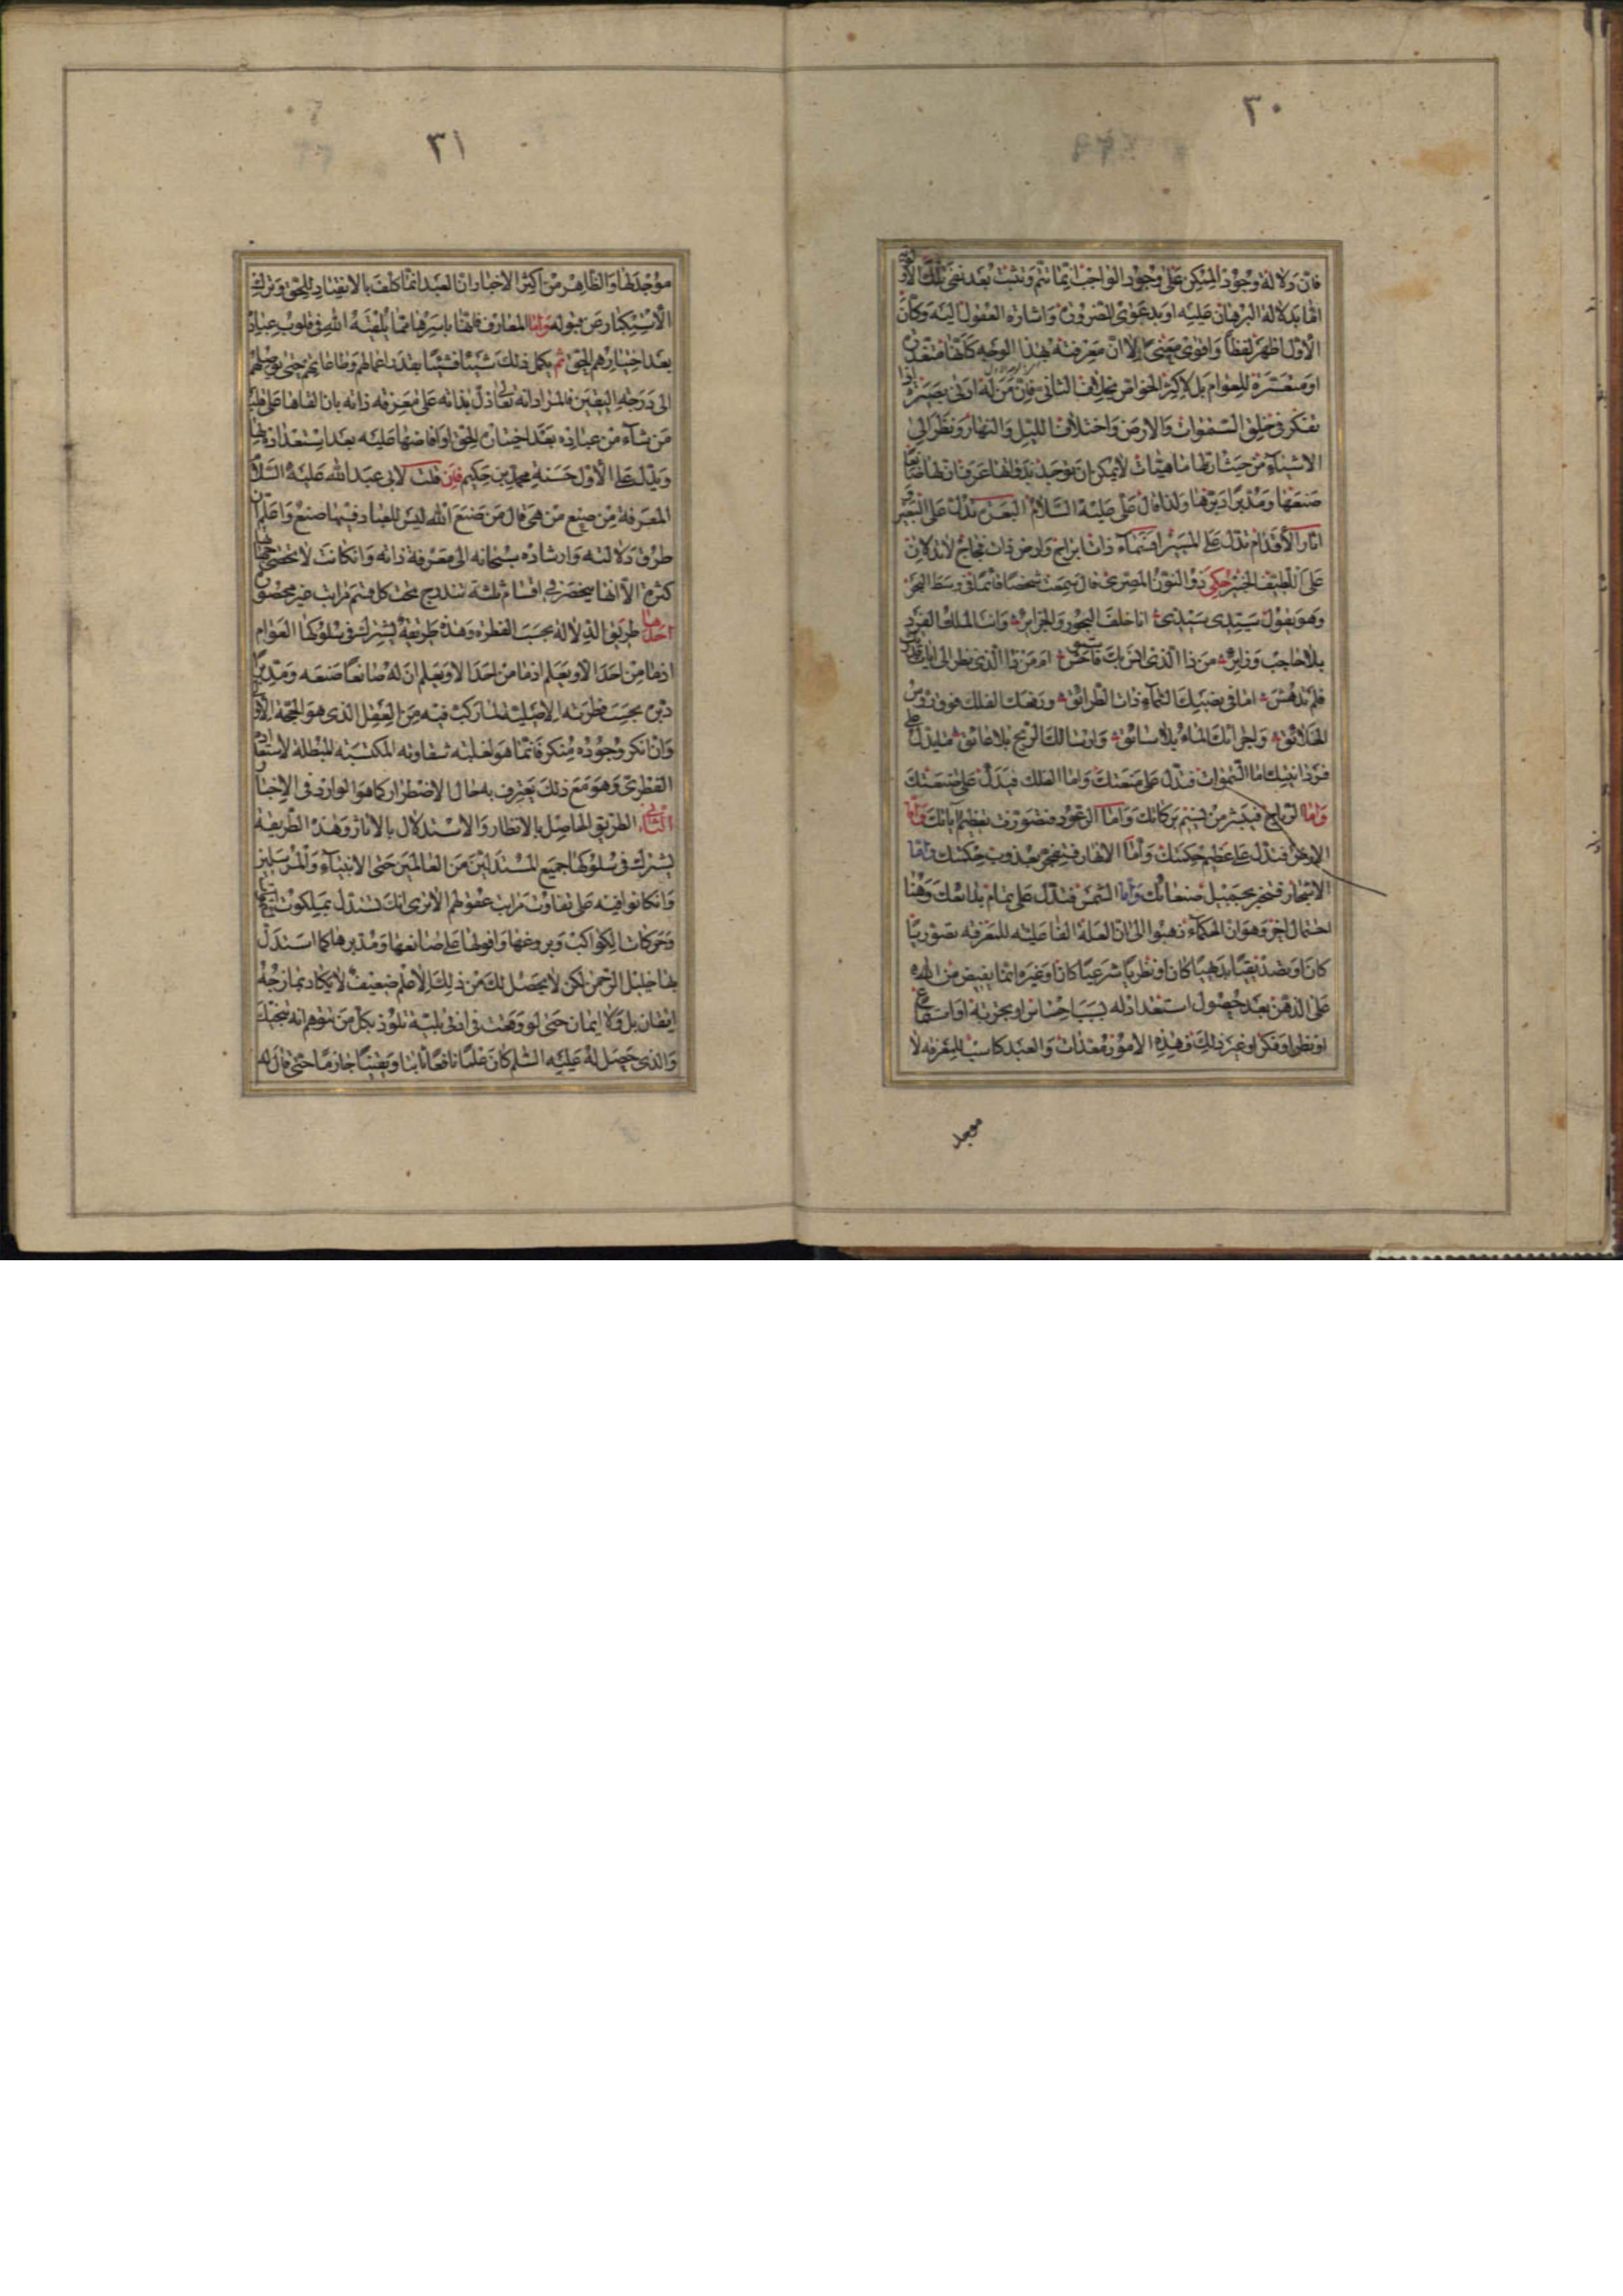 ٣٠
فان دلالة وجود الممكن على وجود الواجب انما تتم وتثبت بعد نفى تلك الاولوية
اما بدلالة البرهان عليه او بدعوى الضرورة واشارة العقول اليه وكان
الاول اظهر لفظا واقوى معنى الا ان معرفته بهذا الوجه كانها متعذرة
او متعسرة للعوام بل لاكثر الخواص بخلاف الثانى فان من له ادنى بصيرة اذا
تفكر فى خلق السموات والارض واختلاف الليل والنهار ونظر الى
الاشياء من حيث ارتها ماهيات لا يمكن ان توجد بذواتها عرف ان لها صانعا
صنعها ومدبرا دبرها ولذا قال على عليه السلام البعرة تدل على البعير و
اثار الاقدام تدل على المسير افسماء ذات ابراج وارض ذات فجاج لا تدلان
على اللطيف الخبير حكى ذو النون المصرى قال سمعت شخصا قائما فى وسط البحر
وهو يقول سيدى سيدى انا خلف البحور والجزاير وانت الملك الفرد
بلا حاجب وزاير من ذا الذى انس بك فاستوحش ام من ذا الذى نظر الى ايات قدرتك
فلم يدهش اما فى نصبك السماء ذات الطرائق ورفعك الفلك فوق رؤس
الخلائق واجرائك الماء بلا سائق وارسالك الريح بلا عائق ما يدل على
فردانيتك اما السموات فتدل على منعتك واما الفلك فيدل على صنعتك
واما الرياح فينشر من نسيم بركاتك واما الرعود فتصوت بعظيم آياتك واما
الارض فتدل على عظيم حكمتك واما الانهار فينفجر بعذوب حكمتك واما
الاشجار فتخبر بجميل صنعاتك واما الشمس فتدل على تمام بدائعك وهنا
احتمال اخر وهو ان الحكماء ذهبوا الى ان العلة الفاعلية للمعرفة تصوريا
كان او تصديقيا بديهيا كان او نظريا شرعيا كان او غيره انما يفيض من الله
على الذهن بعد حصول استعداد له بسبب احساس او تجربة او استماع
او نظر او فكر او غير ذلك فهذه الامور معدات والعبد كاسب للمعرفة لا
موجد
٣١
موجد لها والظاهر من اكثر الاخبار ان العبد انما كلف بالانقياد للحق وترك
الاستكبار عن قبوله واما المعارف فانها باسرها مما يلقيه الله فى قلوب عباده
بعد اختيارهم الحق ثم يكمل ذلك شيئا فشيئا بقدر اعمالهم وطاعاتهم حتى يوصلهم
الى درجة اليقين فالمراد انه تعالى دل بذاته على معرفة ذاته بان القاها على قلب
من شاء من عباده بعد اختيارة الحق او افاضها عليه بعد استعداده لها
ويدل على الاول حسنة محمد بن حكيم فان قلت لابى عبد الله عليه السلام
المعرفة من صنع من هى قال من صنع الله ليس للعباد فيها صنع واعلم ان
طرق دلالته وارشاده سبحانه الى معرفة ذاته وان كانت لا تحصى لها
كثرة الا انها ينحصر فى اقسام ثلثة تندرج تحت كل قسم مراتب غير محصورة
احدها طريق الدلالة بحسب الفطرة وهذه طريقة يشترك فى سلوكها العوام
اذ ما من احد الا ويعلم اذ ما من احد الا ويعلم ان له صانعا صنعه ومدبرا
دبره بحسب فطرته الاصلية لما ركب فيه من العقل الذى هو الحجة الاولى
وان انكر وجوده منكر فانما هو لغلبة شقاوته المكتسبة المبطلة لاستعداده
الفطرى وهو مع ذلك يعترف به حال الاضطرار كما هو الوارد فى الاخبار
الثانى الطريق الحاصل بالانظار والاستدلال بالاثار وهذه الطريقة
يشترك فى سلوكها جميع المستدلين من العالمين حتى الانبياء والمرسلين
وان كانوا فيه على تفاوت مراتب عقولهم الا ترى انك تستدل بملكوت السماء
وحركات الكواكب وبزوغها وافولها على صانعها ومدبرها كما استدل
بها خليل الرحمن لكن لا يحصل لك من ذلك الا علم ضعيف لا يكاد يمازجه
ايقان بل ولا ايمان حتى لو وقعت فى ادنى بلية تلوذ بكل من تتوهم انه ينجيك
والذى حصل له عليه السلم كان علما نافعا ثابتا ويقينا جازما حتى قال له